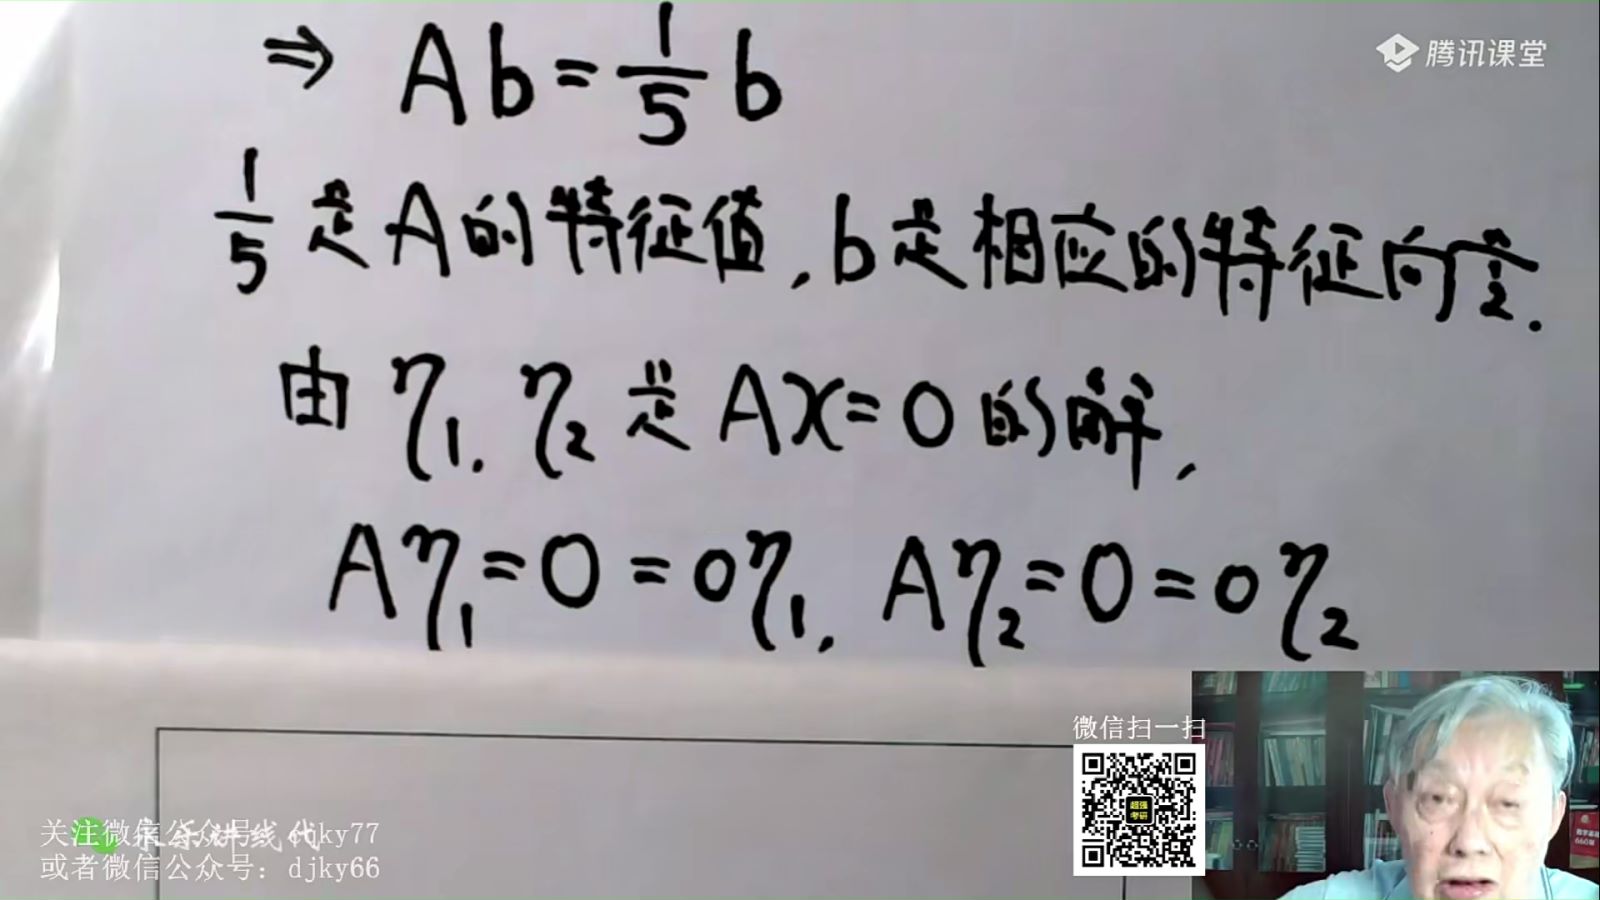 腾讯课堂
⇒ Ab = 1/5 b
1/5 是A的特征值, b是相应的特征向量.
由 η₁, η₂ 是 Ax=0 的解,
Aη₁=0=0η₁, Aη₂=0=0η₂
微信扫一扫
超强
考研
关注微信公众号: djky77
讲线代
或者微信公众号: djky66
660题